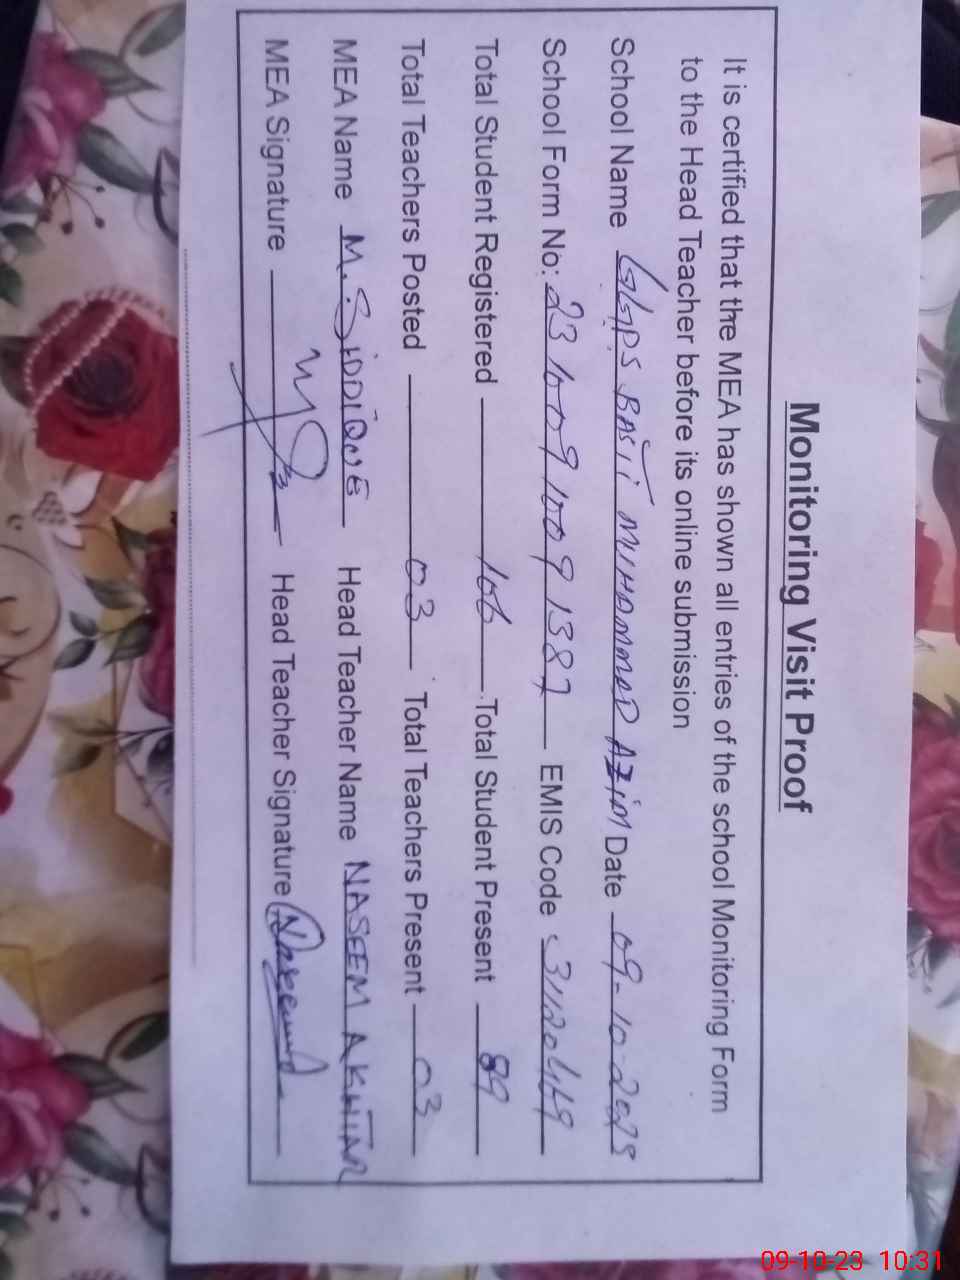 Monitoring Visit Proof
It is certified that the MEA has shown all entries of the school Monitoring Form
to the Head Teacher before its online submission
School Name GGPS BASTI MUHAMMAD AZIM Date 09-10-2023
School Form No: 23100910091387 EMIS Code 31120469
Total Student Registered 106 Total Student Present 89
Total Teachers Posted 03 Total Teachers Present 03
MEA Name M. SIDDIQUE Head Teacher Name NASEEM AKHTAR
MEA Signature Head Teacher Signature Naseem
09-10-23 10:31